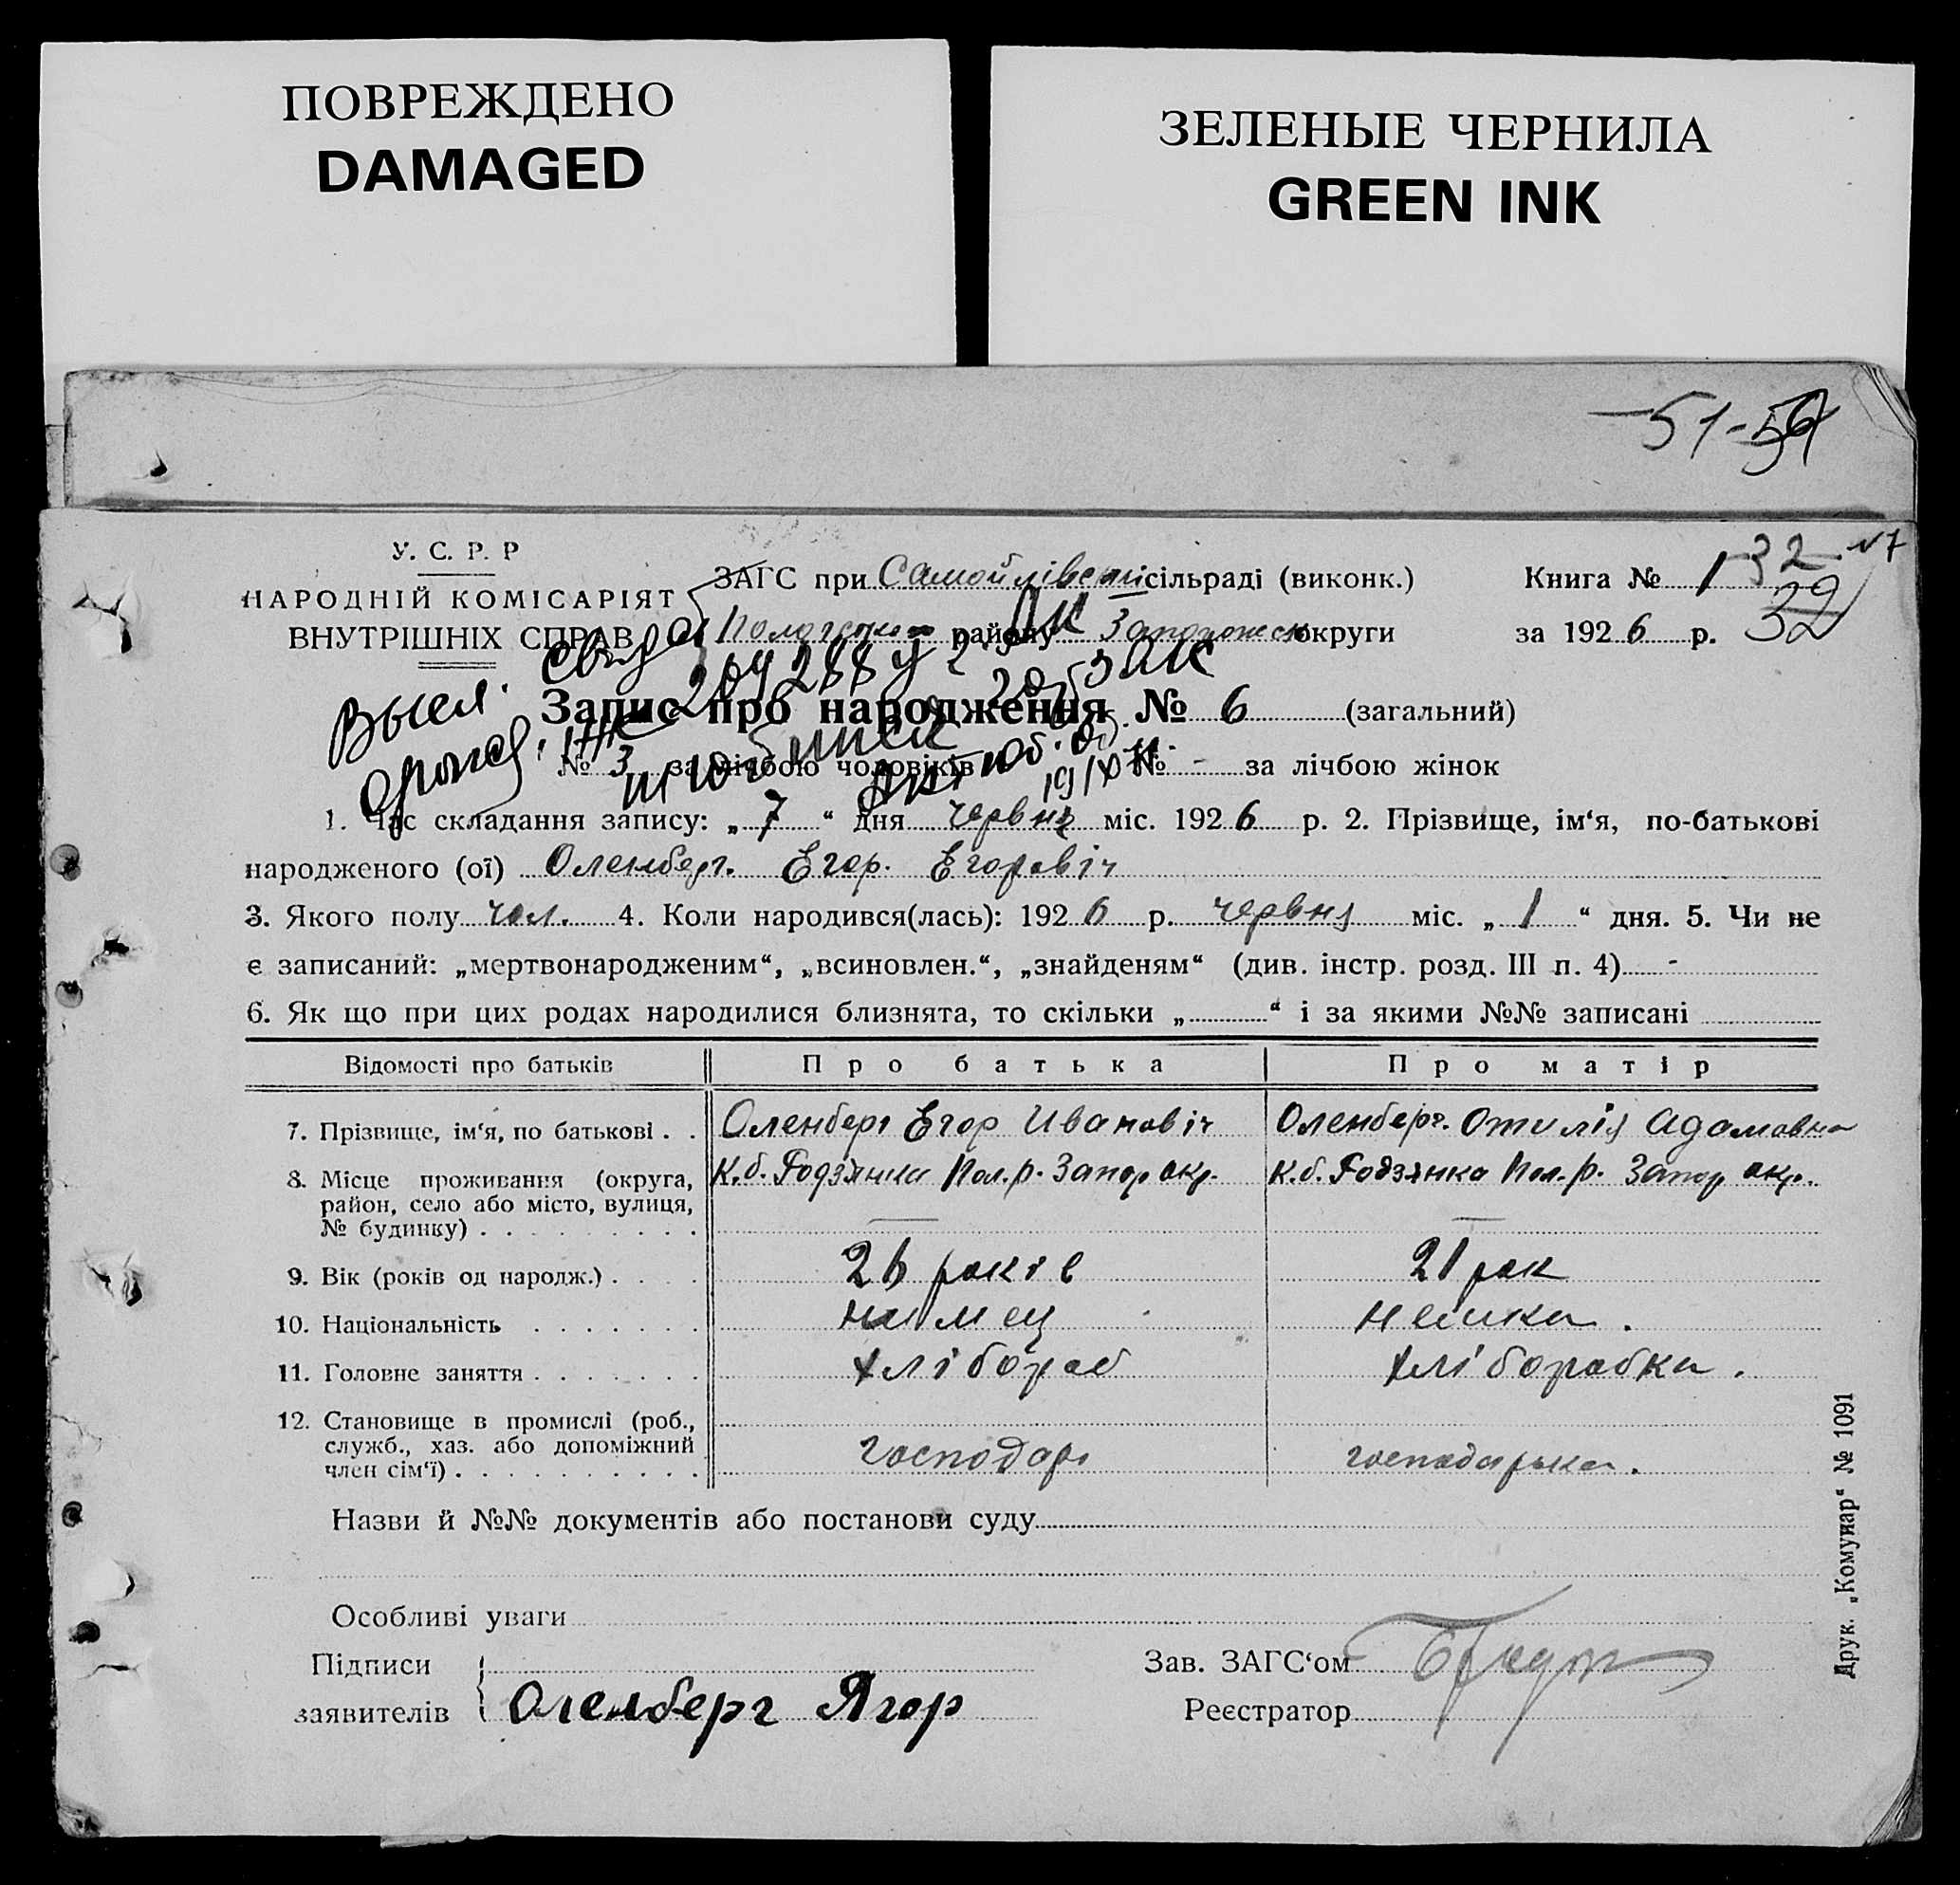 ПОВРЕЖДЕНО
DAMAGED
ЗЕЛЕНЫЕ ЧЕРНИЛА
GREEN INK
51-
У. С. Р. Р
НАРОДНІЙ КОМІСАРІЯТ
ВНУТРІШНІХ СПРАВ
ЗАГС при Самойлівській сільраді (виконк.)
району округи
Книга № 1
32
за 1926 р.
Запис про народження № 6 (загальний)
№ 3 за лічбою чоловіків № - за лічбою жінок
1. Час складання запису: „7“ дня червня міс. 1926 р. 2. Прізвище, ім‘я, по-батькові
народженого (ої) Оленберг. Егор. Егоровіч
3. Якого полу чол. 4. Коли народився(лась): 1926 р. червня міс. „1“ дня. 5. Чи не
є записаний: „мертвонародженим“, „всиновлен.“, „знайденям“ (див. інстр. розд. III п. 4) -
6. Як що при цих родах народилися близнята, то скільки „ “ і за якими №№ записані
Відомості про батьків Про батька Про матір
7. Прізвище, ім‘я, по батькові . . Оленберг Егор Ивановіч Оленберг. Отилія Адамовна
8. Місце проживання (округа, К.б. Родзянка Пол.р. Запор окр. К.б. Родзянка Пол.р. Запор окр.
район, село або місто, вулиця,
№ будинку)
9. Вік (років од народж.) 26 років 21 рок
10. Національність нимец немка.
11. Головне заняття хлібороб хлiборобка.
12. Становище в промислі (роб.,
служб., хаз. або допоміжний
член сім‘ї) господар господарька.
Назви й №№ документів або постанови суду
Особливі уваги
Підписи
заявителів Оленберг Ягор
Зав. ЗАГС‘ом
Реєстратор
Друк. „Комунар“ № 1091